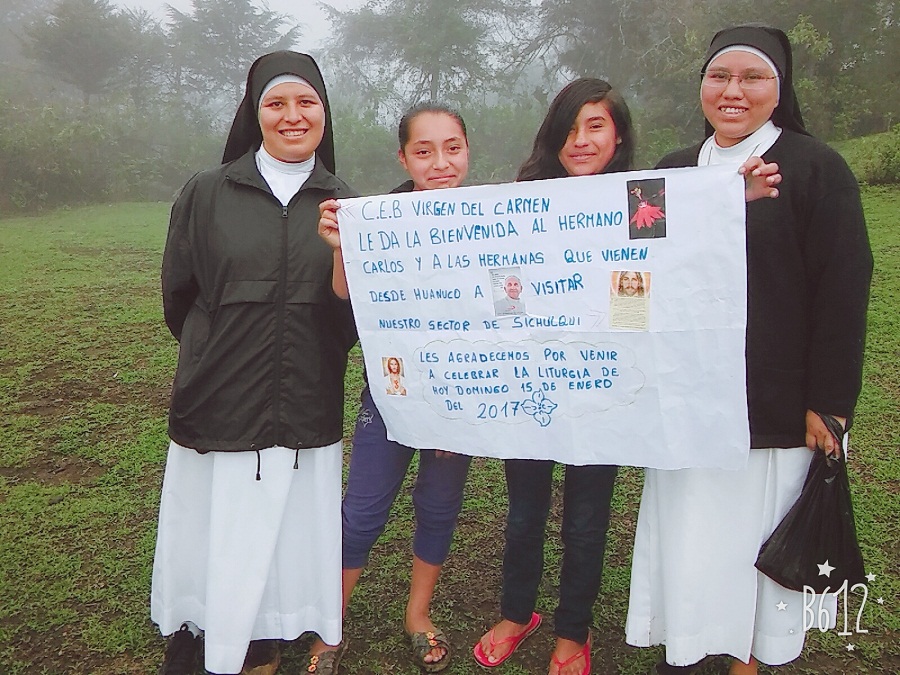 C.E.B VIRGEN DEL CARMEN
LE DA LA BIENVENIDA AL HERMANO
CARLOS Y A LAS HERMANAS QUE VIENEN
DESDE HUANUCO A VISITAR
NUESTRO SECTOR DE SICHULQUI
LES AGRADECEMOS POR VENIR
A CELEBRAR LA LITURGIA DE
HOY DOMINGO 15 DE ENERO
DEL 2017
B612